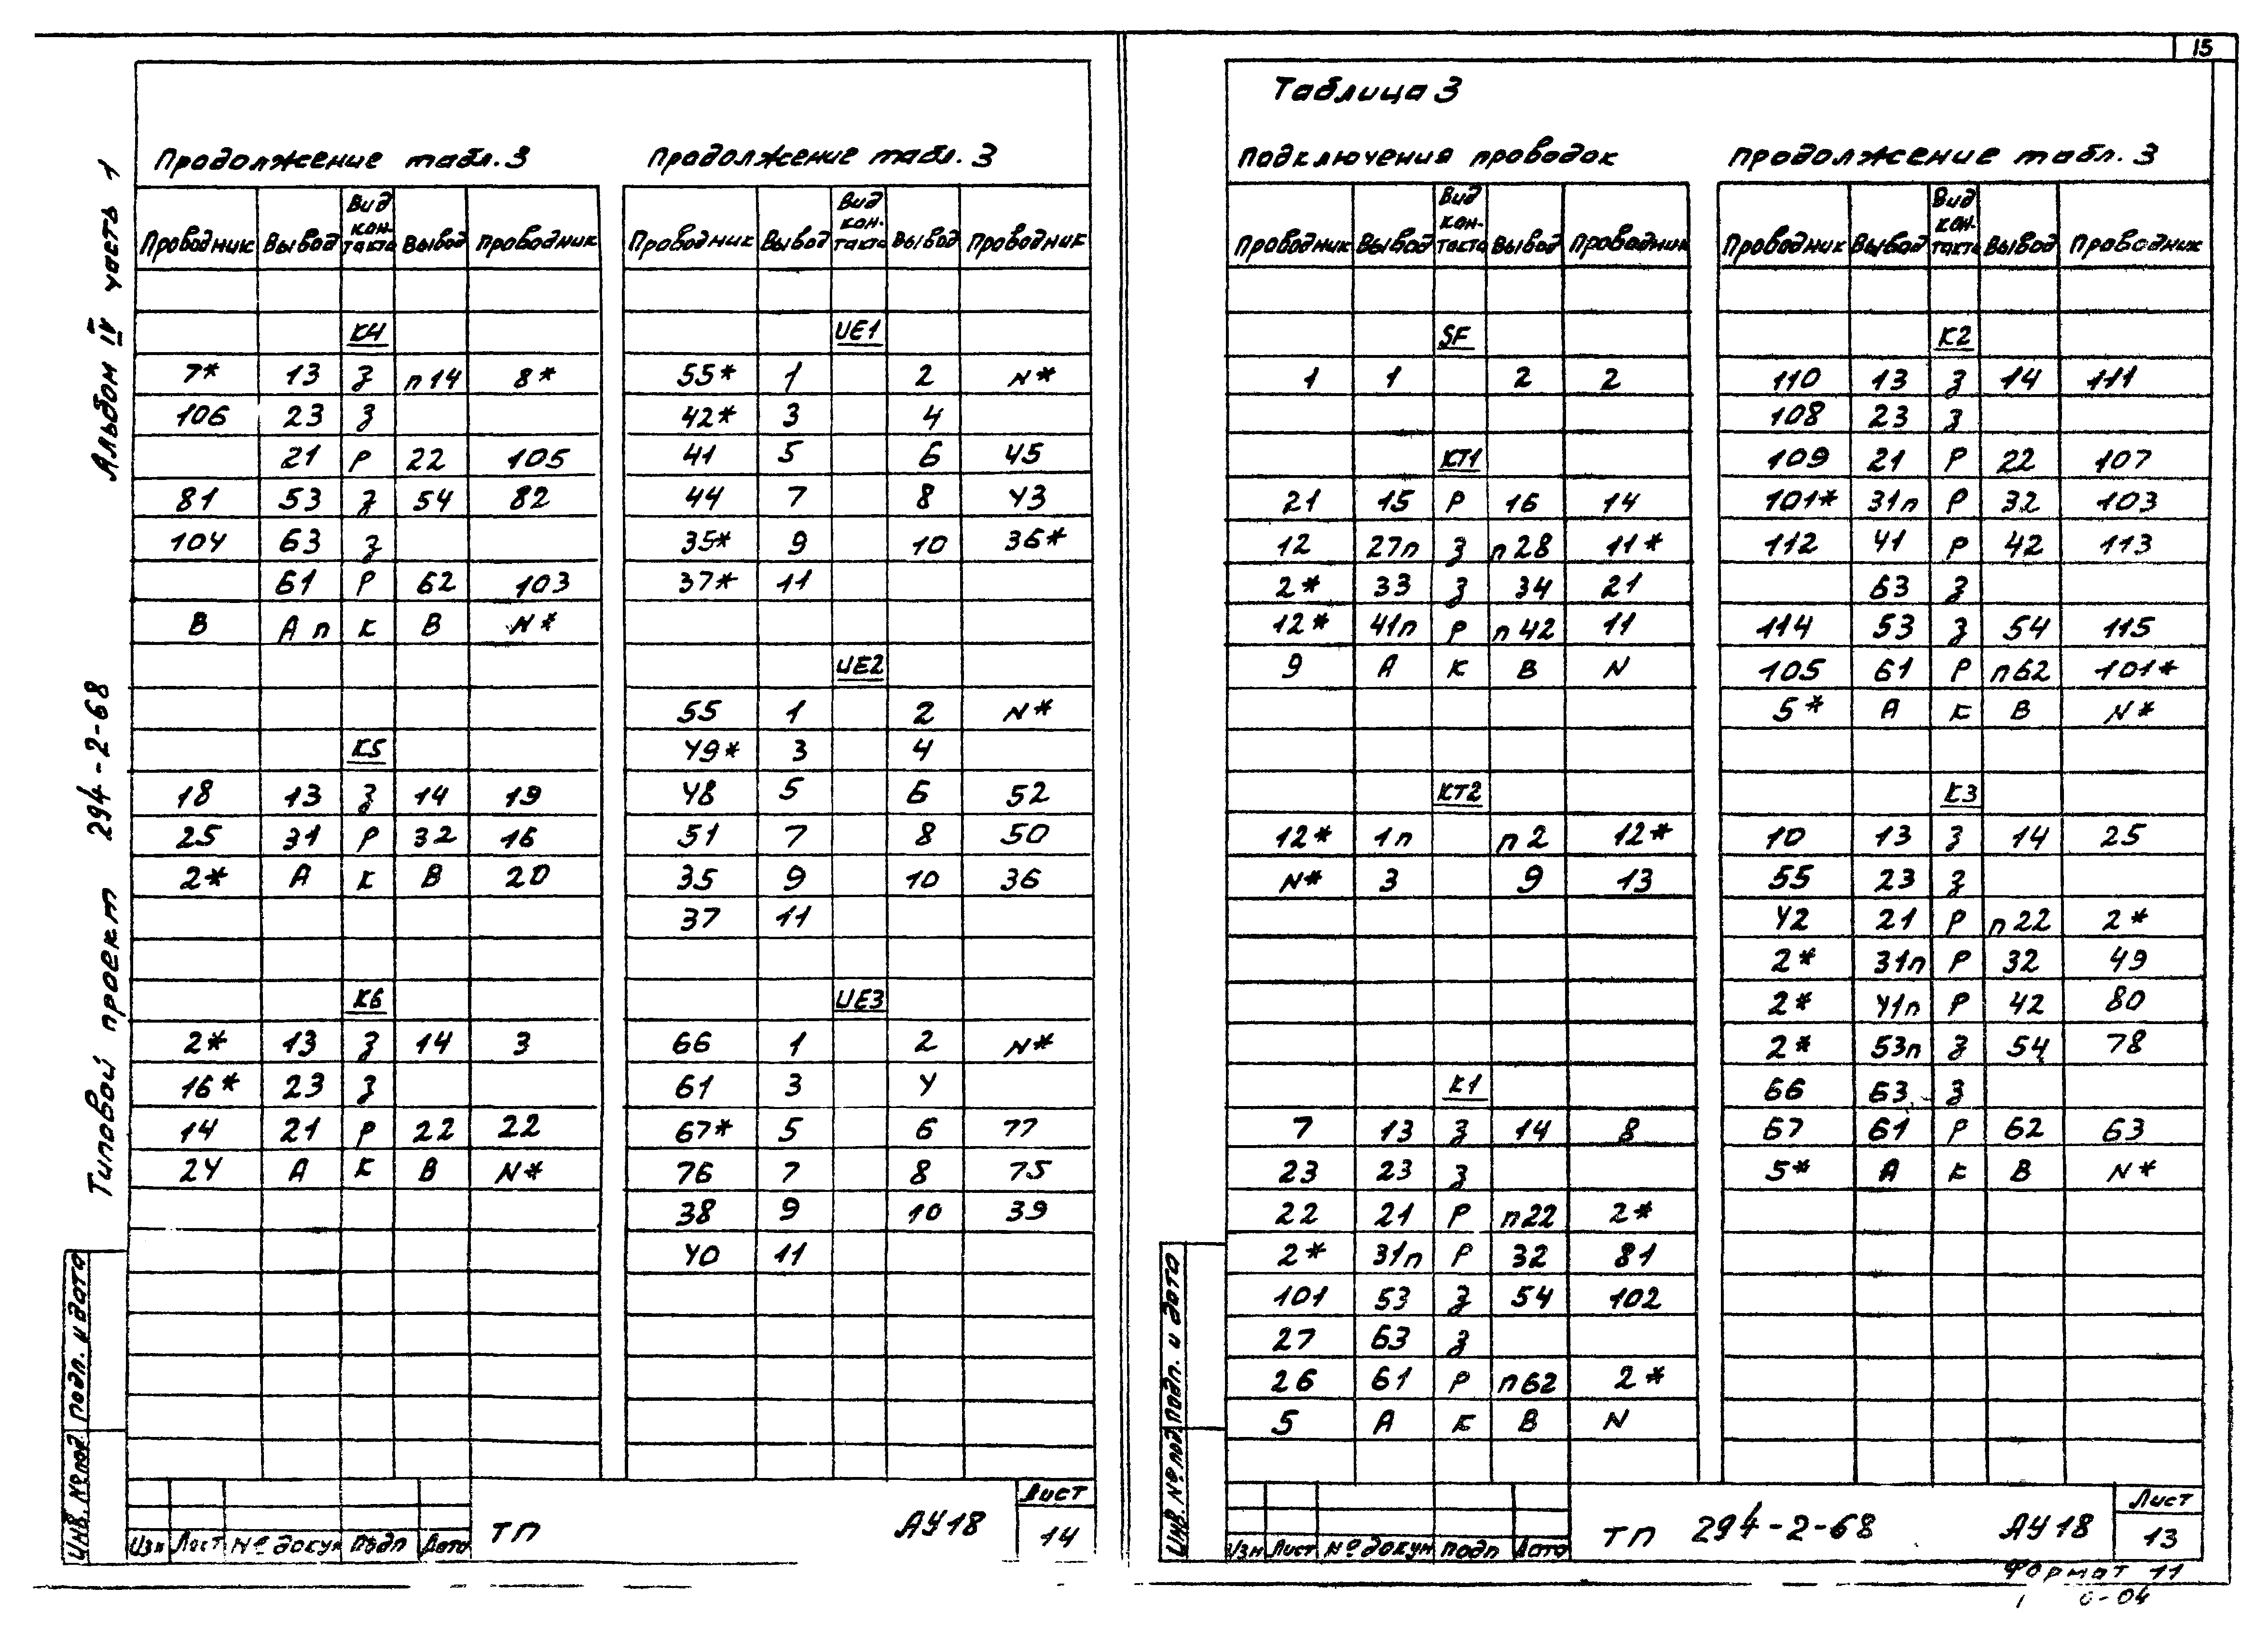 15
Альбом IV часть 1
Типовой проект 294-2-68
Продолжение табл. 3
Проводник Вывод Вид кон-такта Вывод Проводник
К4
7* 13 З п14 8*
106 23 З
21 Р 22 105
81 53 З 54 82
104 63 З
61 Р 62 103
В А п К В N*
К5
18 13 З 14 19
25 31 Р 32 16
2* А К В 20
К6
2* 13 З 14 3
16* 23 З
14 21 Р 22 22
24 А К В N*
Продолжение табл. 3
Проводник Вывод Вид кон-такта Вывод Проводник
UE1
55* 1 2 N*
42* 3 4
41 5 6 45
44 7 8 43
35* 9 10 36*
37* 11
UE2
55 1 2 N*
49* 3 4
48 5 6 52
51 7 8 50
35 9 10 36
37 11
UE3
66 1 2 N*
61 3 4
67* 5 6 77
76 7 8 75
38 9 10 39
40 11
Инв. № подл. Подп. и дата
Изм Лист № докум Подп Дата
ТП АУ18
Лист
14
Таблица 3
Подключения проводок
Проводник Вывод Вид кон-такта Вывод Проводник
SF
1 1 2 2
КТ1
21 15 Р 16 14
12 27п З п28 11*
2* 33 З 34 21
12* 41п Р п42 11
9 А К В N
КТ2
12* 1п п2 12*
N* 3 9 13
К1
7 13 З 14 8
23 23 З
22 21 Р п22 2*
2* 31п Р 32 81
101 53 З 54 102
27 63 З
26 61 Р п62 2*
5 А К В N
Продолжение табл. 3
Проводник Вывод Вид кон-такта Вывод Проводник
К2
110 13 З 14 111
108 23 З
109 21 Р 22 107
101* 31п Р 32 103
112 41 Р 42 113
63 З
114 53 З 54 115
105 61 Р п62 101*
5* А К В N*
К3
10 13 З 14 25
55 23 З
42 21 Р п22 2*
2* 31п Р 32 49
2* 41п Р 42 80
2* 53п З 54 78
66 63 З
67 61 Р 62 63
5* А К В N*
Инв. № подл. Подп. и дата
Изм Лист № докум Подп Дата
ТП 294-2-68 АУ18
Лист
13
Формат 11
-04